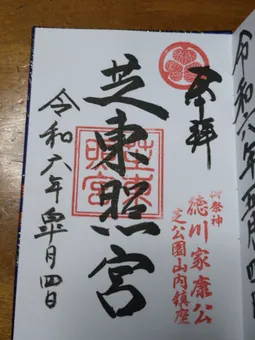 令和六年五月四日
奉拝
御祭神
徳川家康公
芝公園山内鎮座
芝東照宮
芝東照宮
令和六年皐月四日